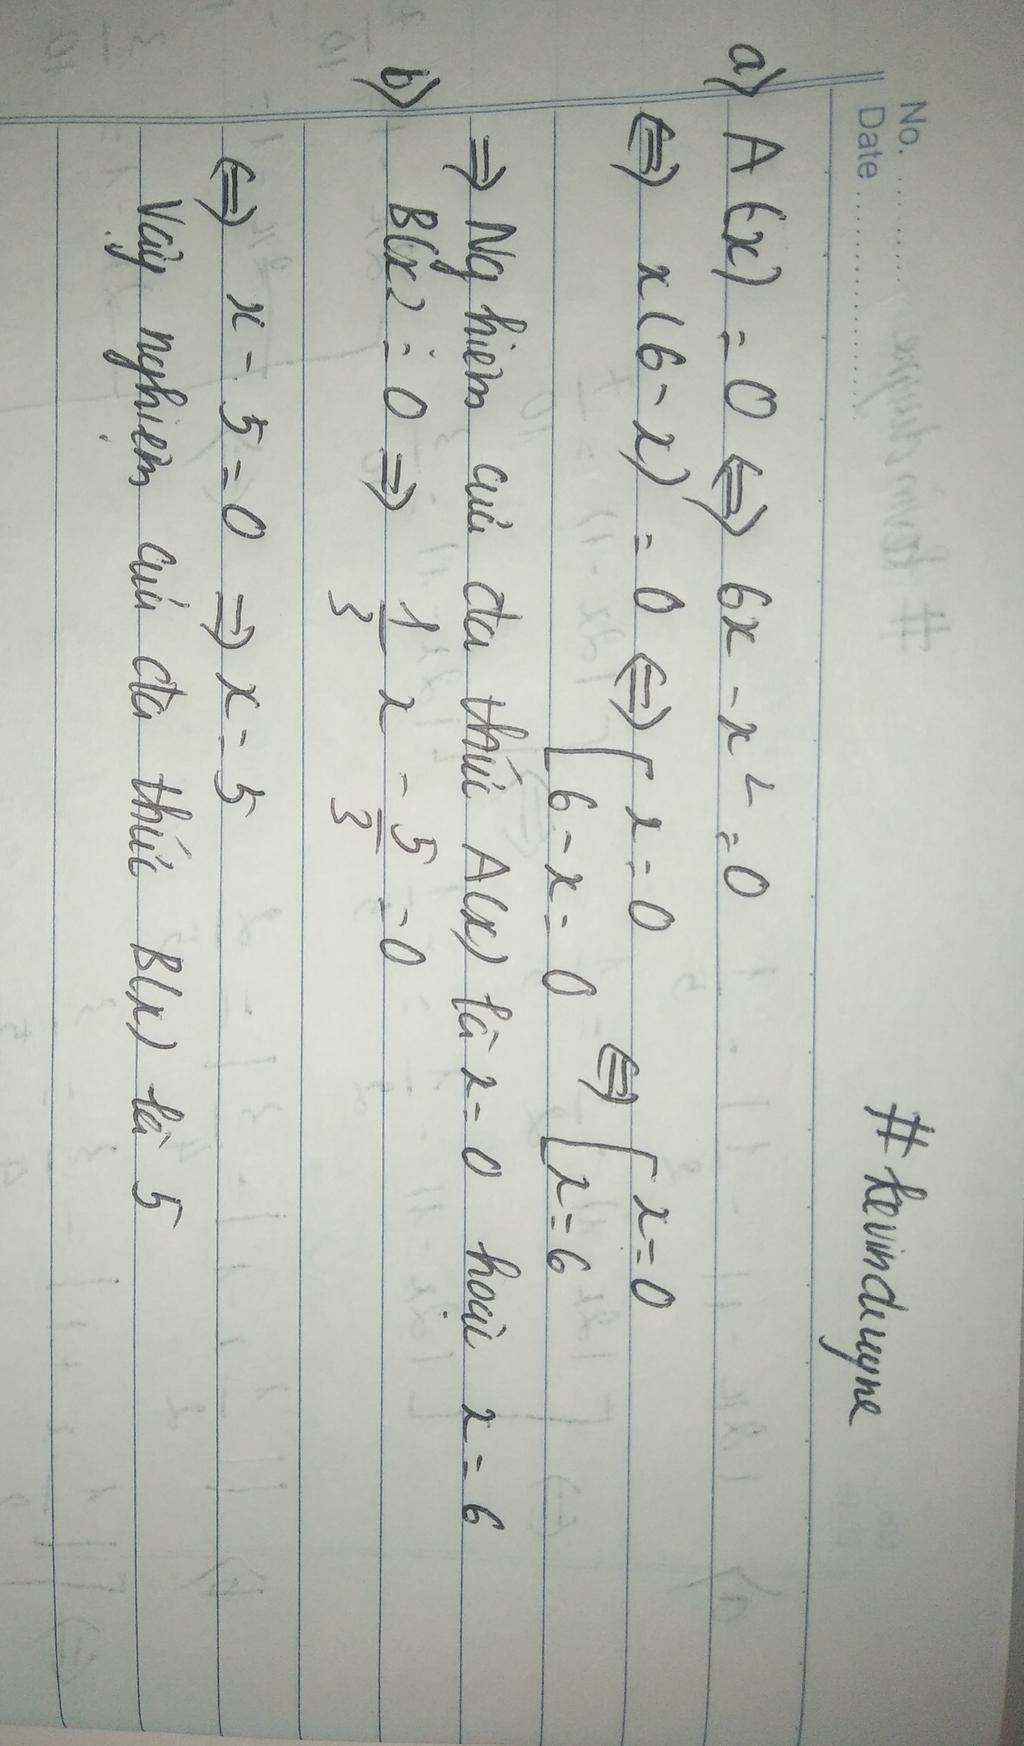 No.
Date
# kevinduyne
a) A(x) = 0 ⇔ 6x - x² = 0
⇔ x(6 - x) = 0 ⇔ [ x = 0
6 - x = 0 ⇔ [ x = 0
x = 6
⇒ Nghiệm của đa thức A(x) là x = 0 hoặc x = 6
b) B(x) = 0 ⇒ 1/3 x - 5/3 = 0
⇔ x - 5 = 0 ⇒ x = 5
Vậy nghiệm của đa thức B(x) là 5